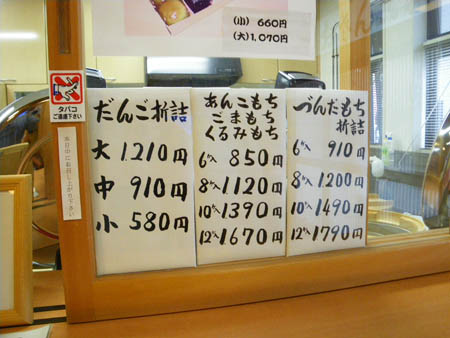 (小) 660円
(大) 1,070円
タバコ
ご遠慮下さい
本日中にお召し上がり下さい
だんご折詰
大 1.210円
中 910円
小 580円
あんこもち
ごまもち
くるみもち
6ヶ入 850円
8ヶ入 1120円
10ヶ入 1390円
12ヶ入 1670円
づんだもち
折詰
6ヶ入 910円
8ヶ入 1.200円
10ヶ入 1490円
12ヶ入 1790円